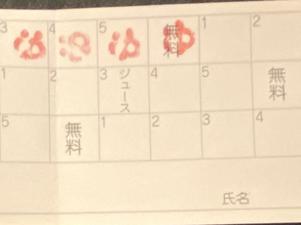 3 4 5 無料 1 2
1 2 3 ジュース 4 5 無料
5 無料 1 2 3 4
氏名